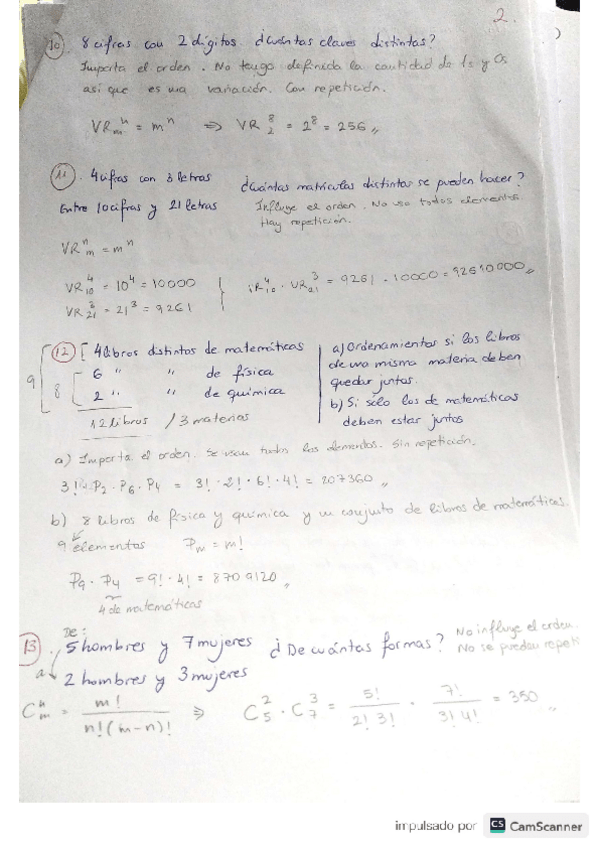 2.
10 8 cifras con 2 dígitos ¿Cuántas claves distintas?
Importa el orden. No tengo definida la cantidad de 1s y 0s
así que es una variación. Con repetición.
VR_m^n = m^n ⇒ VR_2^8 = 2^8 = 256 //
11. 4 cifras con 3 letras ¿Cuántas matrículas distintas se pueden hacer?
Entre 10 cifras y 21 letras Influye el orden. No uso todos elementos.
Hay repetición.
VR_m^n = m^n
VR_10^4 = 10^4 = 10000
VR_21^3 = 21^3 = 9261 } VR_10^4 · VR_21^3 = 9261 · 10000 = 92610000 //
12 [ 4 libros distintos de matemáticas
9 [ 8 [ 6 " " de física
2 " " de química
12 libros / 3 materias
a) Ordenamientos si los libros
de una misma materia deben
quedar juntos.
b) Si sólo los de matemáticas
deben estar juntos
a) Importa el orden. Se usan todos los elementos. Sin repetición.
3! · P2 · P6 · P4 = 3! · 2! · 6! · 4! = 207360 //
b) 8 libros de física y química y un conjunto de libros de matemáticas.
9 elementos Pm = m!
P9 · P4 = 9! · 4! = 8709120 //
4 de matemáticas
13 De:
5 hombres y 7 mujeres ¿De cuántas formas? No influye el orden.
No se pueden repetir
a 2 hombres y 3 mujeres
C_m^n = m! / n!(m-n)! ⇒ C_5^2 · C_7^3 = 5! / 2! 3! · 7! / 3! 4! = 350 //
impulsado por CS CamScanner